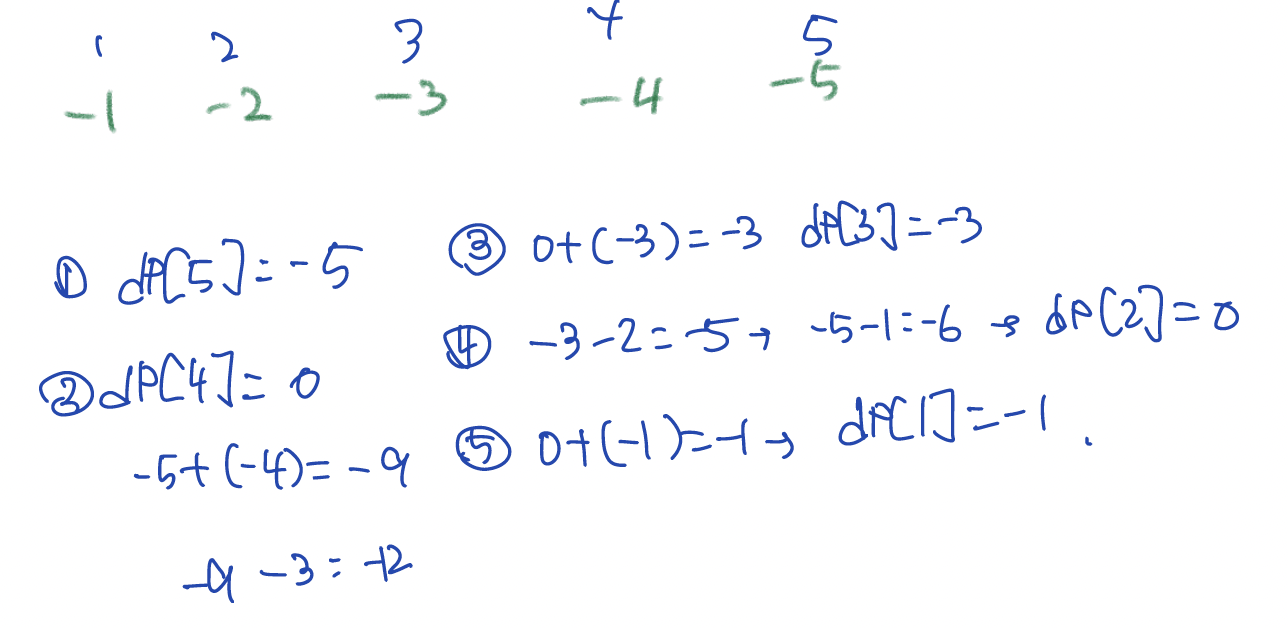 1 2 3 4 5
-1 -2 -3 -4 -5
① dP[5] = -5
② dP[4] = 0
-5+(-4) = -9
-9 -3 = -12
③ 0+(-3) = -3 dP[3] = -3
④ -3-2 = -5 → -5-1 = -6 → dP[2] = 0
⑤ 0+(-1) = -1 → dP[1] = -1 .